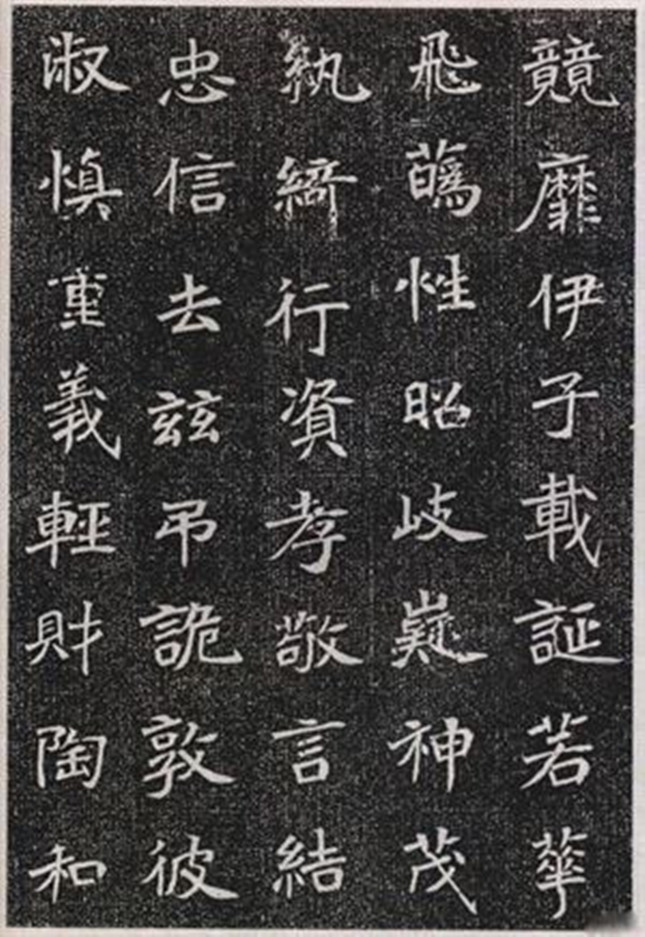 競靡伊子載誕若華
飛蔿性昭岐嶷神茂
執綺行資孝敬言結
忠信去玆弔詭敦彼
淑慎重義輕財陶和